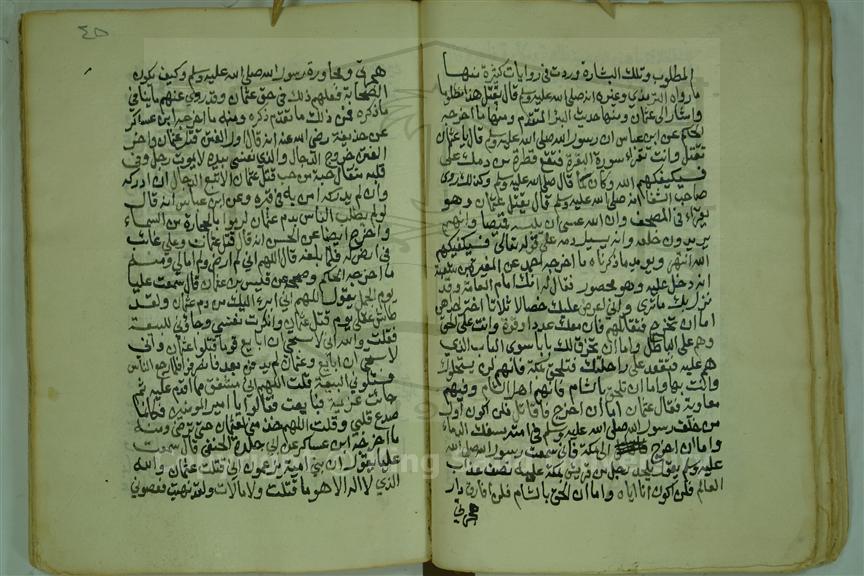 المطلوب وتلك البشارة وردت في روايات كثيرة منها
ما رواه الترمذي وغيره انه صلى الله عليه وسلم قال يقتل هذا مظلوما
واشار الى عثمان ومنها حديث البئر المتقدم ومنها ما اخرجه
الحاكم عن ابن عباس ان رسول الله صلى الله عليه وسلم قال يا عثمان
تقتل وانت تقراء سورة البقرة فتقع قطرة من دمك على
فسيكفيكهم الله وكان كما قال صلى الله عليه وسلم وكذلك روى
صاحب الشفا انه صلى الله عليه وسلم قال يقتل عثمان وهو
يقراء في المصحف وان الله عسى ان يلبسه قميصا وانهم
يريدون خلعه وانه يسيل دمه على قوله تعالى فسيكفيكهم
الله انتهى ويويد ما ذكرناه ما اخرجه احمد عن المغيرة بن شعبة
انه دخل عليه وهو محصور فقال له انك امام العامة وقد
نزل بك ما ترى واني اعرض عليك خصالا ثلاثا اختر احداهن
اما ان تخرج فتقاتلهم فان معك عددا وقوة وانت على الحق
وهم على الباطل واما ان تخرق لك بابا سوى الباب الذي
هم عليه فتقعد على راحلتك فتلحق بمكة فانهم لن يستحلوك
وانت بها واما ان تلحق بالشام فانهم اهل الشام وفيهم
معاوية فقال عثمان اما ان اخرج فاقاتل فلن اكون اول
من خلف رسول الله صلى الله عليه وسلم في امته بسفك الدماء
واما ان اخرج الى مكة فاني سمعت رسول الله صلى الله
عليه وسلم يقول يلحد رجل من قريش بمكة عليه نصف عذاب
العالم فلن اكون انا اياه واما ان الحق بالشام فلن افارق دار
هجرتي
٤٥
هجرتي ومجاورة رسول الله صلى الله عليه وسلم وكيف يكون
الصحابة فعلهم ذلك في حق عثمان وقد روي عنهم ما ينافي
ما ذكره فمن ذلك ما تقدم ذكره ومنه ما اخرجه ابن عساكر
عن حذيفة رضي الله عنه انه قال اول الفتن قتل عثمان واخر
الفتن خروج الدجال والذي نفسي بيده لا يموت رجل وفي
قلبه مثقال حبة من حب قتل عثمان الا تبع الدجال ان ادركه
وان لم يدركه امن به في قبره وعن ابن عباس انه قال
لو لم يطلب الناس بدم عثمان لرموا بالحجارة من السماء
واخرج ايضا عن الحسن انه قال قتل عثمان وعلي غائب
في ارض له فلما بلغه قال اللهم اني لم ارض ولم امالي ومنه
ما اخرجه الحاكم وصححه عن قيس بن عباد قال سمعت عليا
يوم الجمل يقول اللهم اني ابرئ اليك من دم عثمان ولقد
طاش عقلي يوم قتل عثمان وانكرت نفسي وجاؤني للبيعة
فقلت والله اني لاستحي ان ابايع قوما قتلوا عثمان واني
لاستحي ان ابايع وعثمان لم يدفن بعد فانصرفوا فلما رجع الناس
فسئلوني البيعة قلت اللهم اني مشفق مما اقدم عليه ثم
جائت عزيمة فبايعت فقالوا يا امير المومنين فكانما
صدع قلبي وقلت اللهم خذ مني لعثمان حتى ترضى ومنه
ما اخرجه ابن عساكر عن ابي خلدة الحنفي قال سمعت
عليا يقول ان بني امية يزعمون اني قتلت عثمان والله
الذي لا اله الا هو ما قتلت ولا مالات ولقد نهيت فعصوني